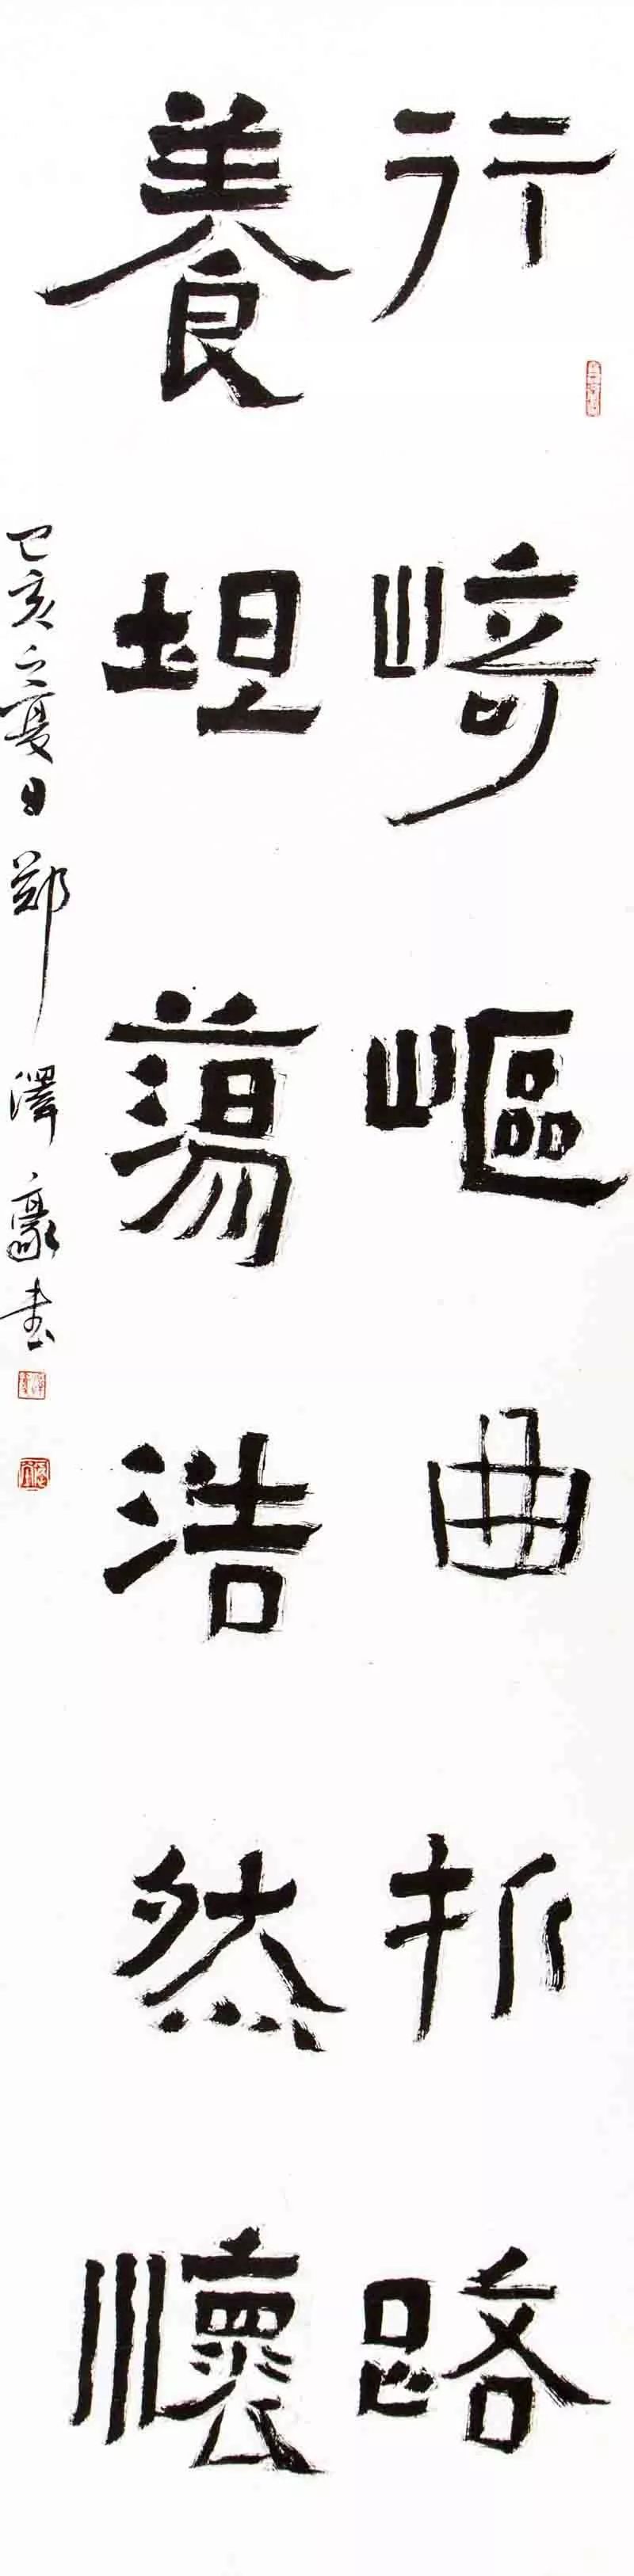 行崎嶇曲折路
養坦蕩浩然懷
己亥之夏日鄭澤豪書